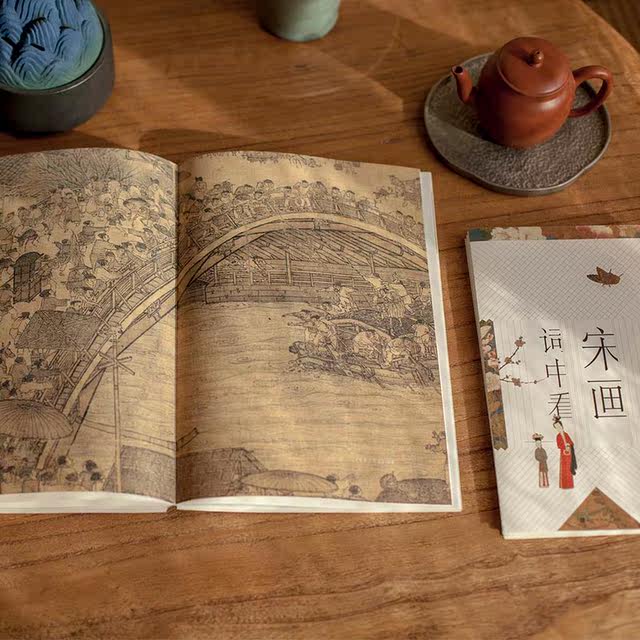 宋画
词中看